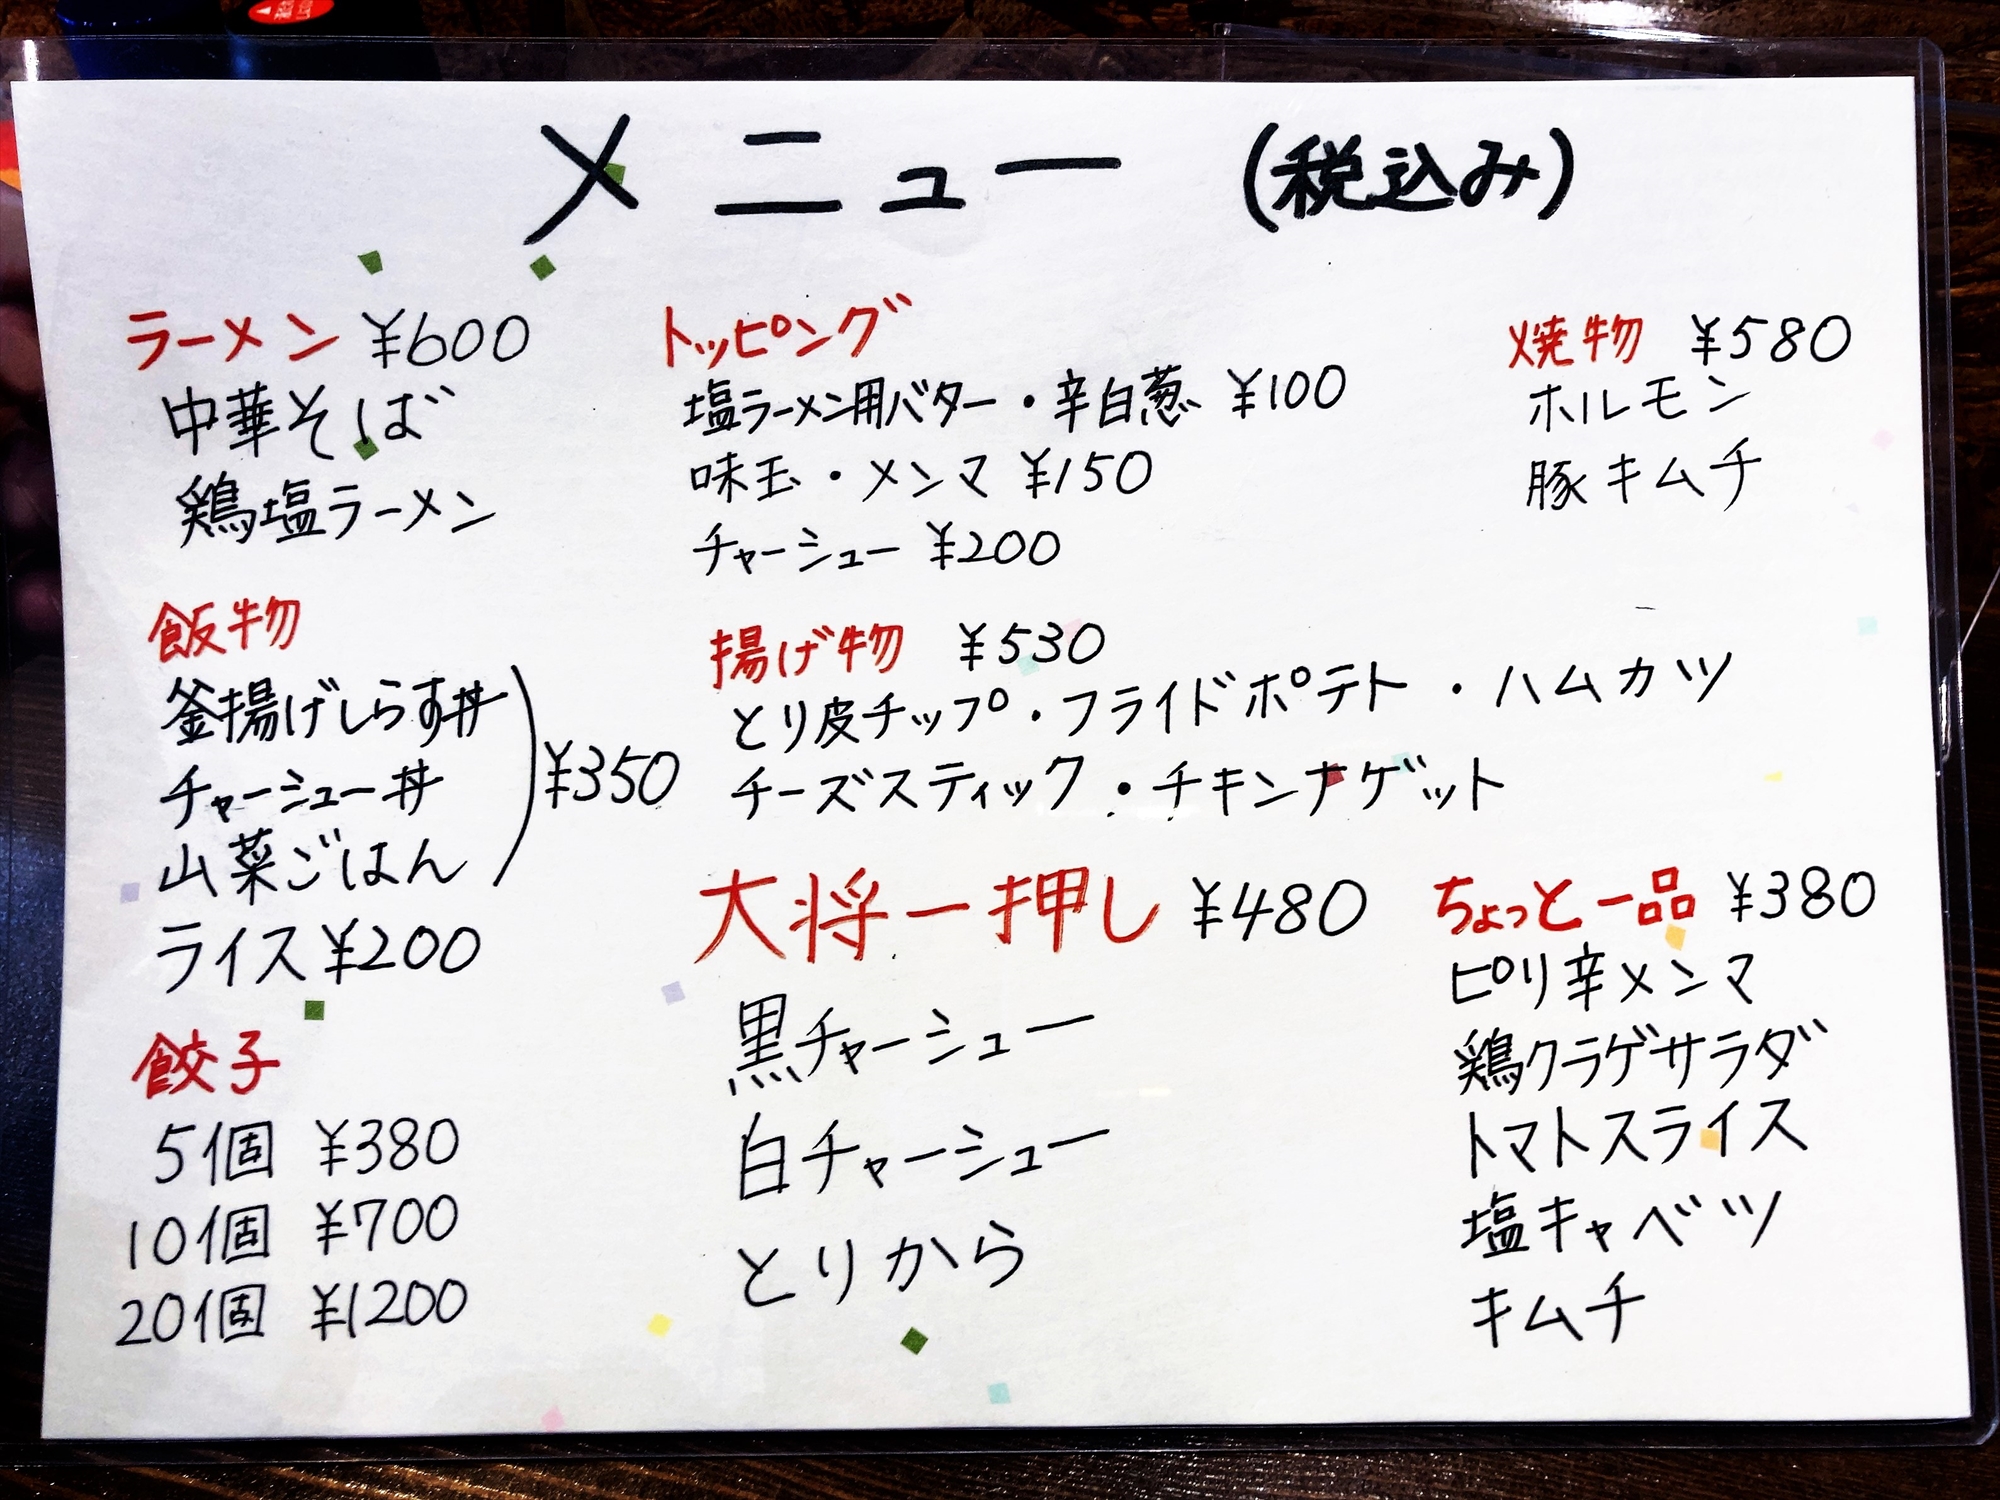 メニュー (税込み)
ラーメン ¥600
中華そば
鶏塩ラーメン
飯物
釜揚げしらす丼
チャーシュー丼
山菜ごはん
¥350
ライス ¥200
餃子
5個 ¥380
10個 ¥700
20個 ¥1200
トッピング
塩ラーメン用バター・辛白葱 ¥100
味玉・メンマ ¥150
チャーシュー ¥200
揚げ物 ¥530
とり皮チップ・フライドポテト・ハムカツ
チーズスティック・チキンナゲット
大将一押し ¥480
黒チャーシュー
白チャーシュー
とりから
焼物 ¥580
ホルモン
豚キムチ
ちょっと一品 ¥380
ピリ辛メンマ
鶏クラゲサラダ
トマトスライス
塩キャベツ
キムチ